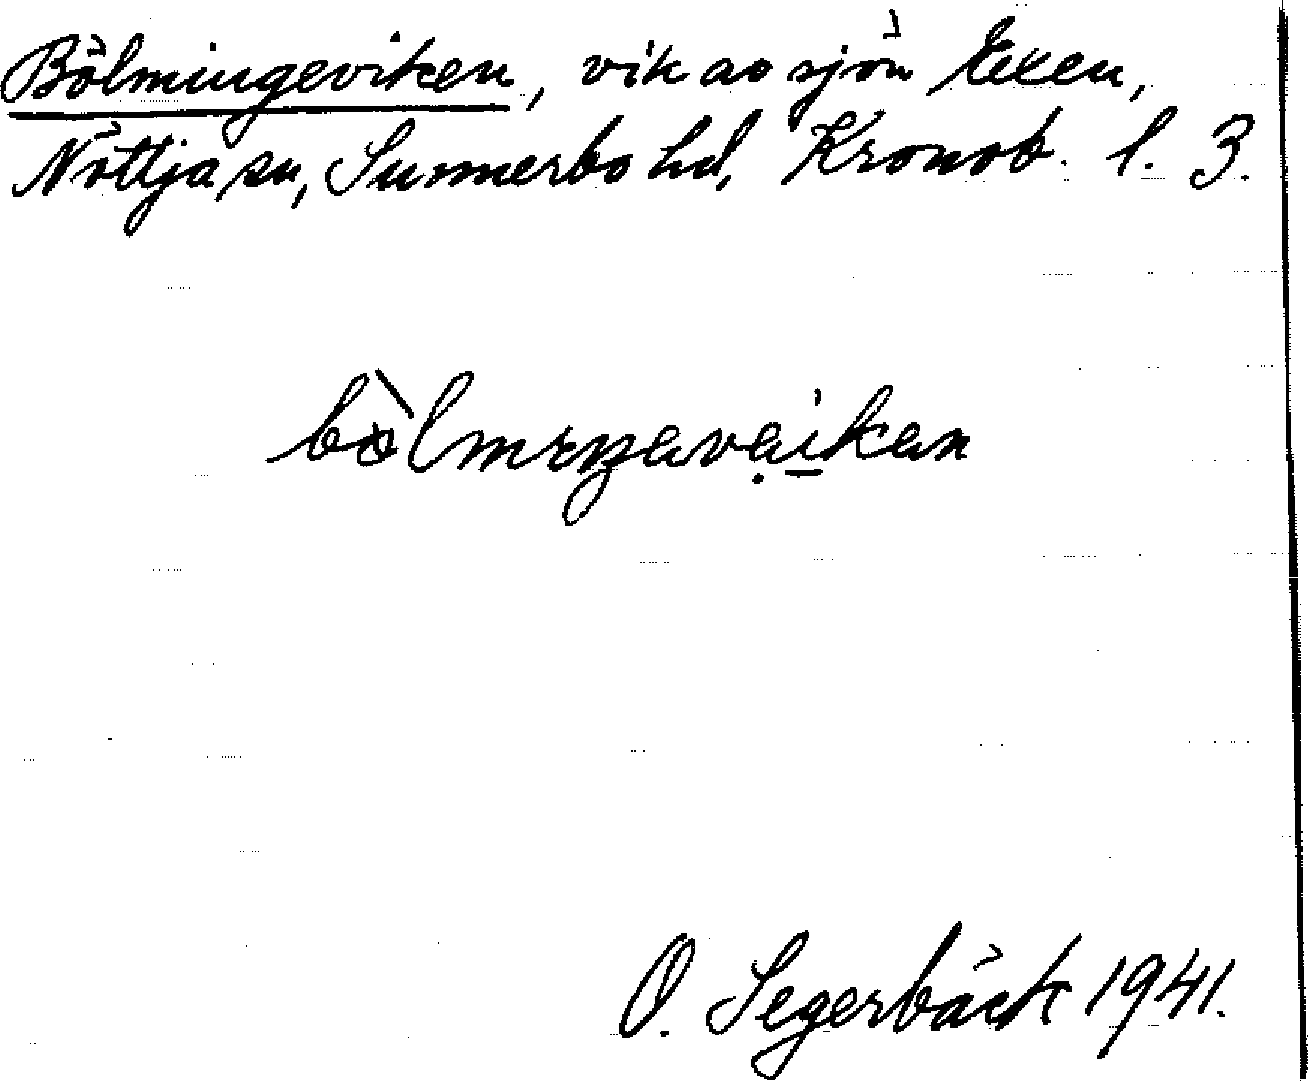 Bölmingeviken, vik av sjön Exen,
Nöttja sn, Sunnerbo hd, Kronob. l. 3.
bòlmıŋavaikan
O. Segerbäck 1941.